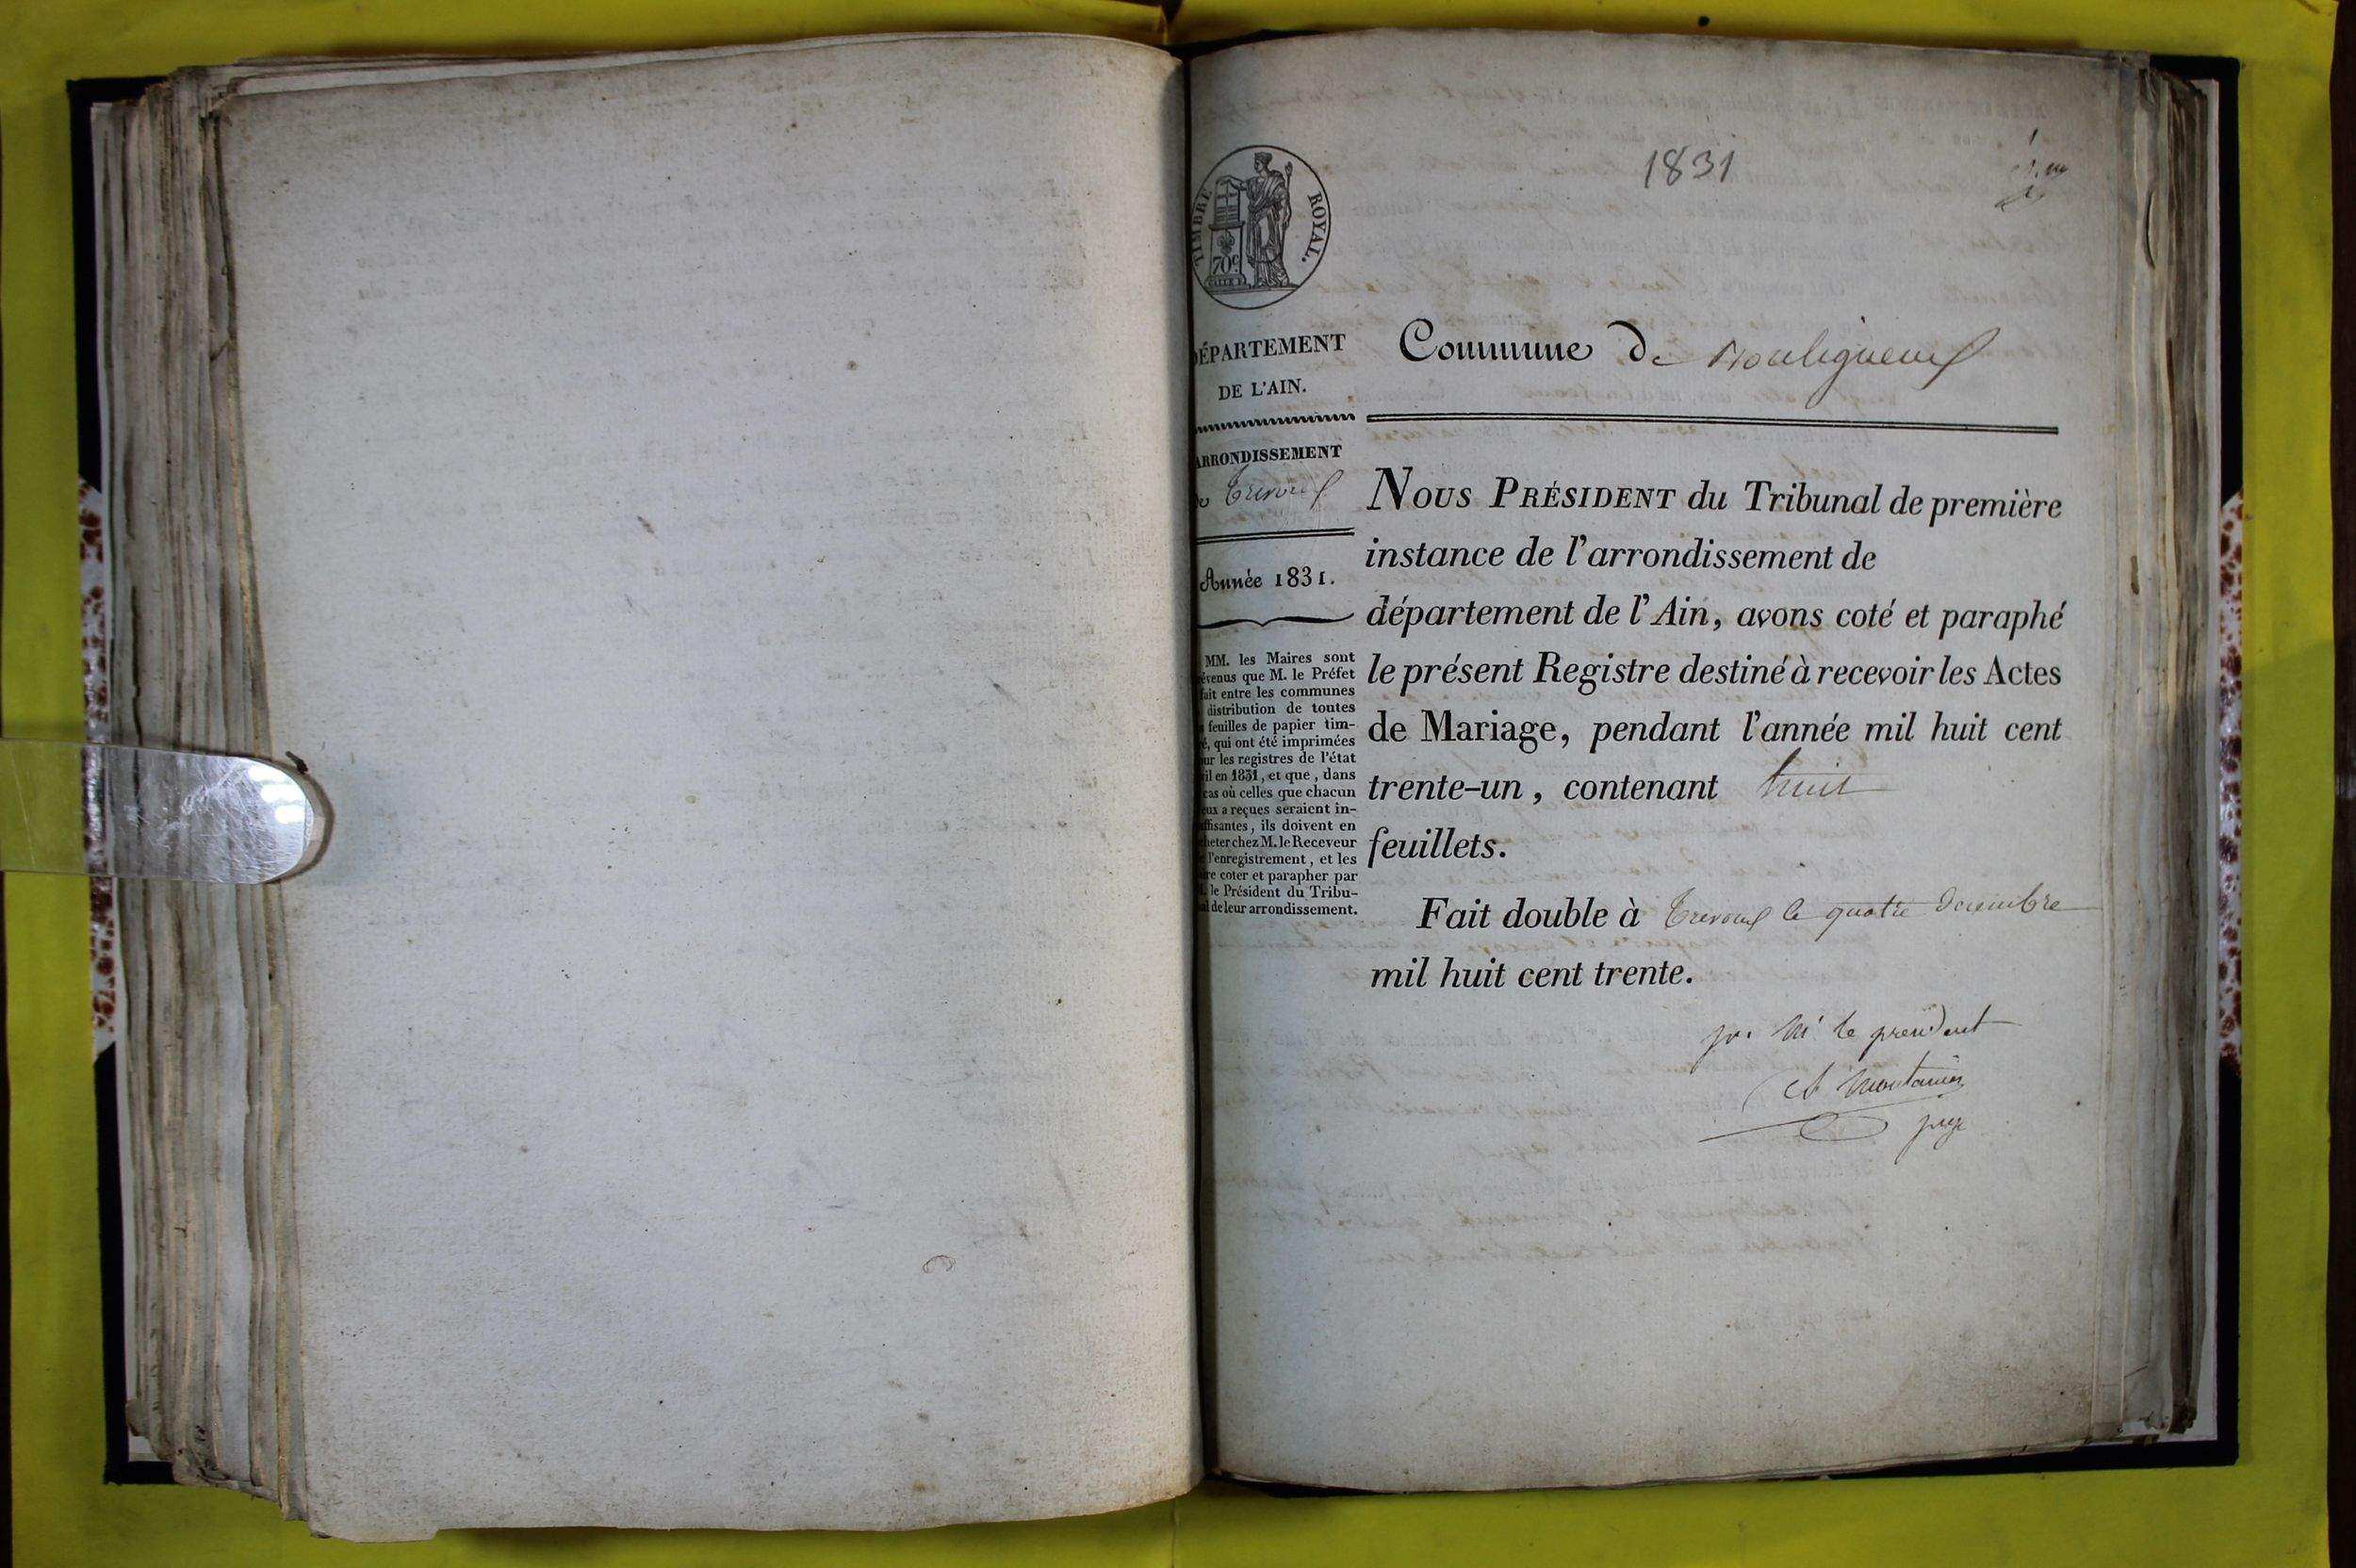 1831
TIMBRE ROYAL.
70c
DÉPARTEMENT
DE L'AIN.
Commune de Bouligneux
ARRONDISSEMENT
de Trevoux
Année 1831.
MM. les Maires sont
évenus que M. le Préfet
fait entre les communes
distribution de toutes
feuilles de papier tim-
é, qui ont été imprimées
ur les registres de l'état
il en 1831, et que, dans
cas où celles que chacun
eux a reçues seraient in-
ffisantes, ils doivent en
cheter chez M. le Receveur
l'enregistrement, et les
ire coter et parapher par
le Président du Tribu-
al de leur arrondissement.
NOUS PRÉSIDENT du Tribunal de première
instance de l'arrondissement de
département de l'Ain, avons coté et paraphé
le présent Registre destiné à recevoir les Actes
de Mariage, pendant l'année mil huit cent
trente-un, contenant huit
feuillets.
Fait double à Trevoux le quatre Decembre
mil huit cent trente.
pr. M. le president
juge